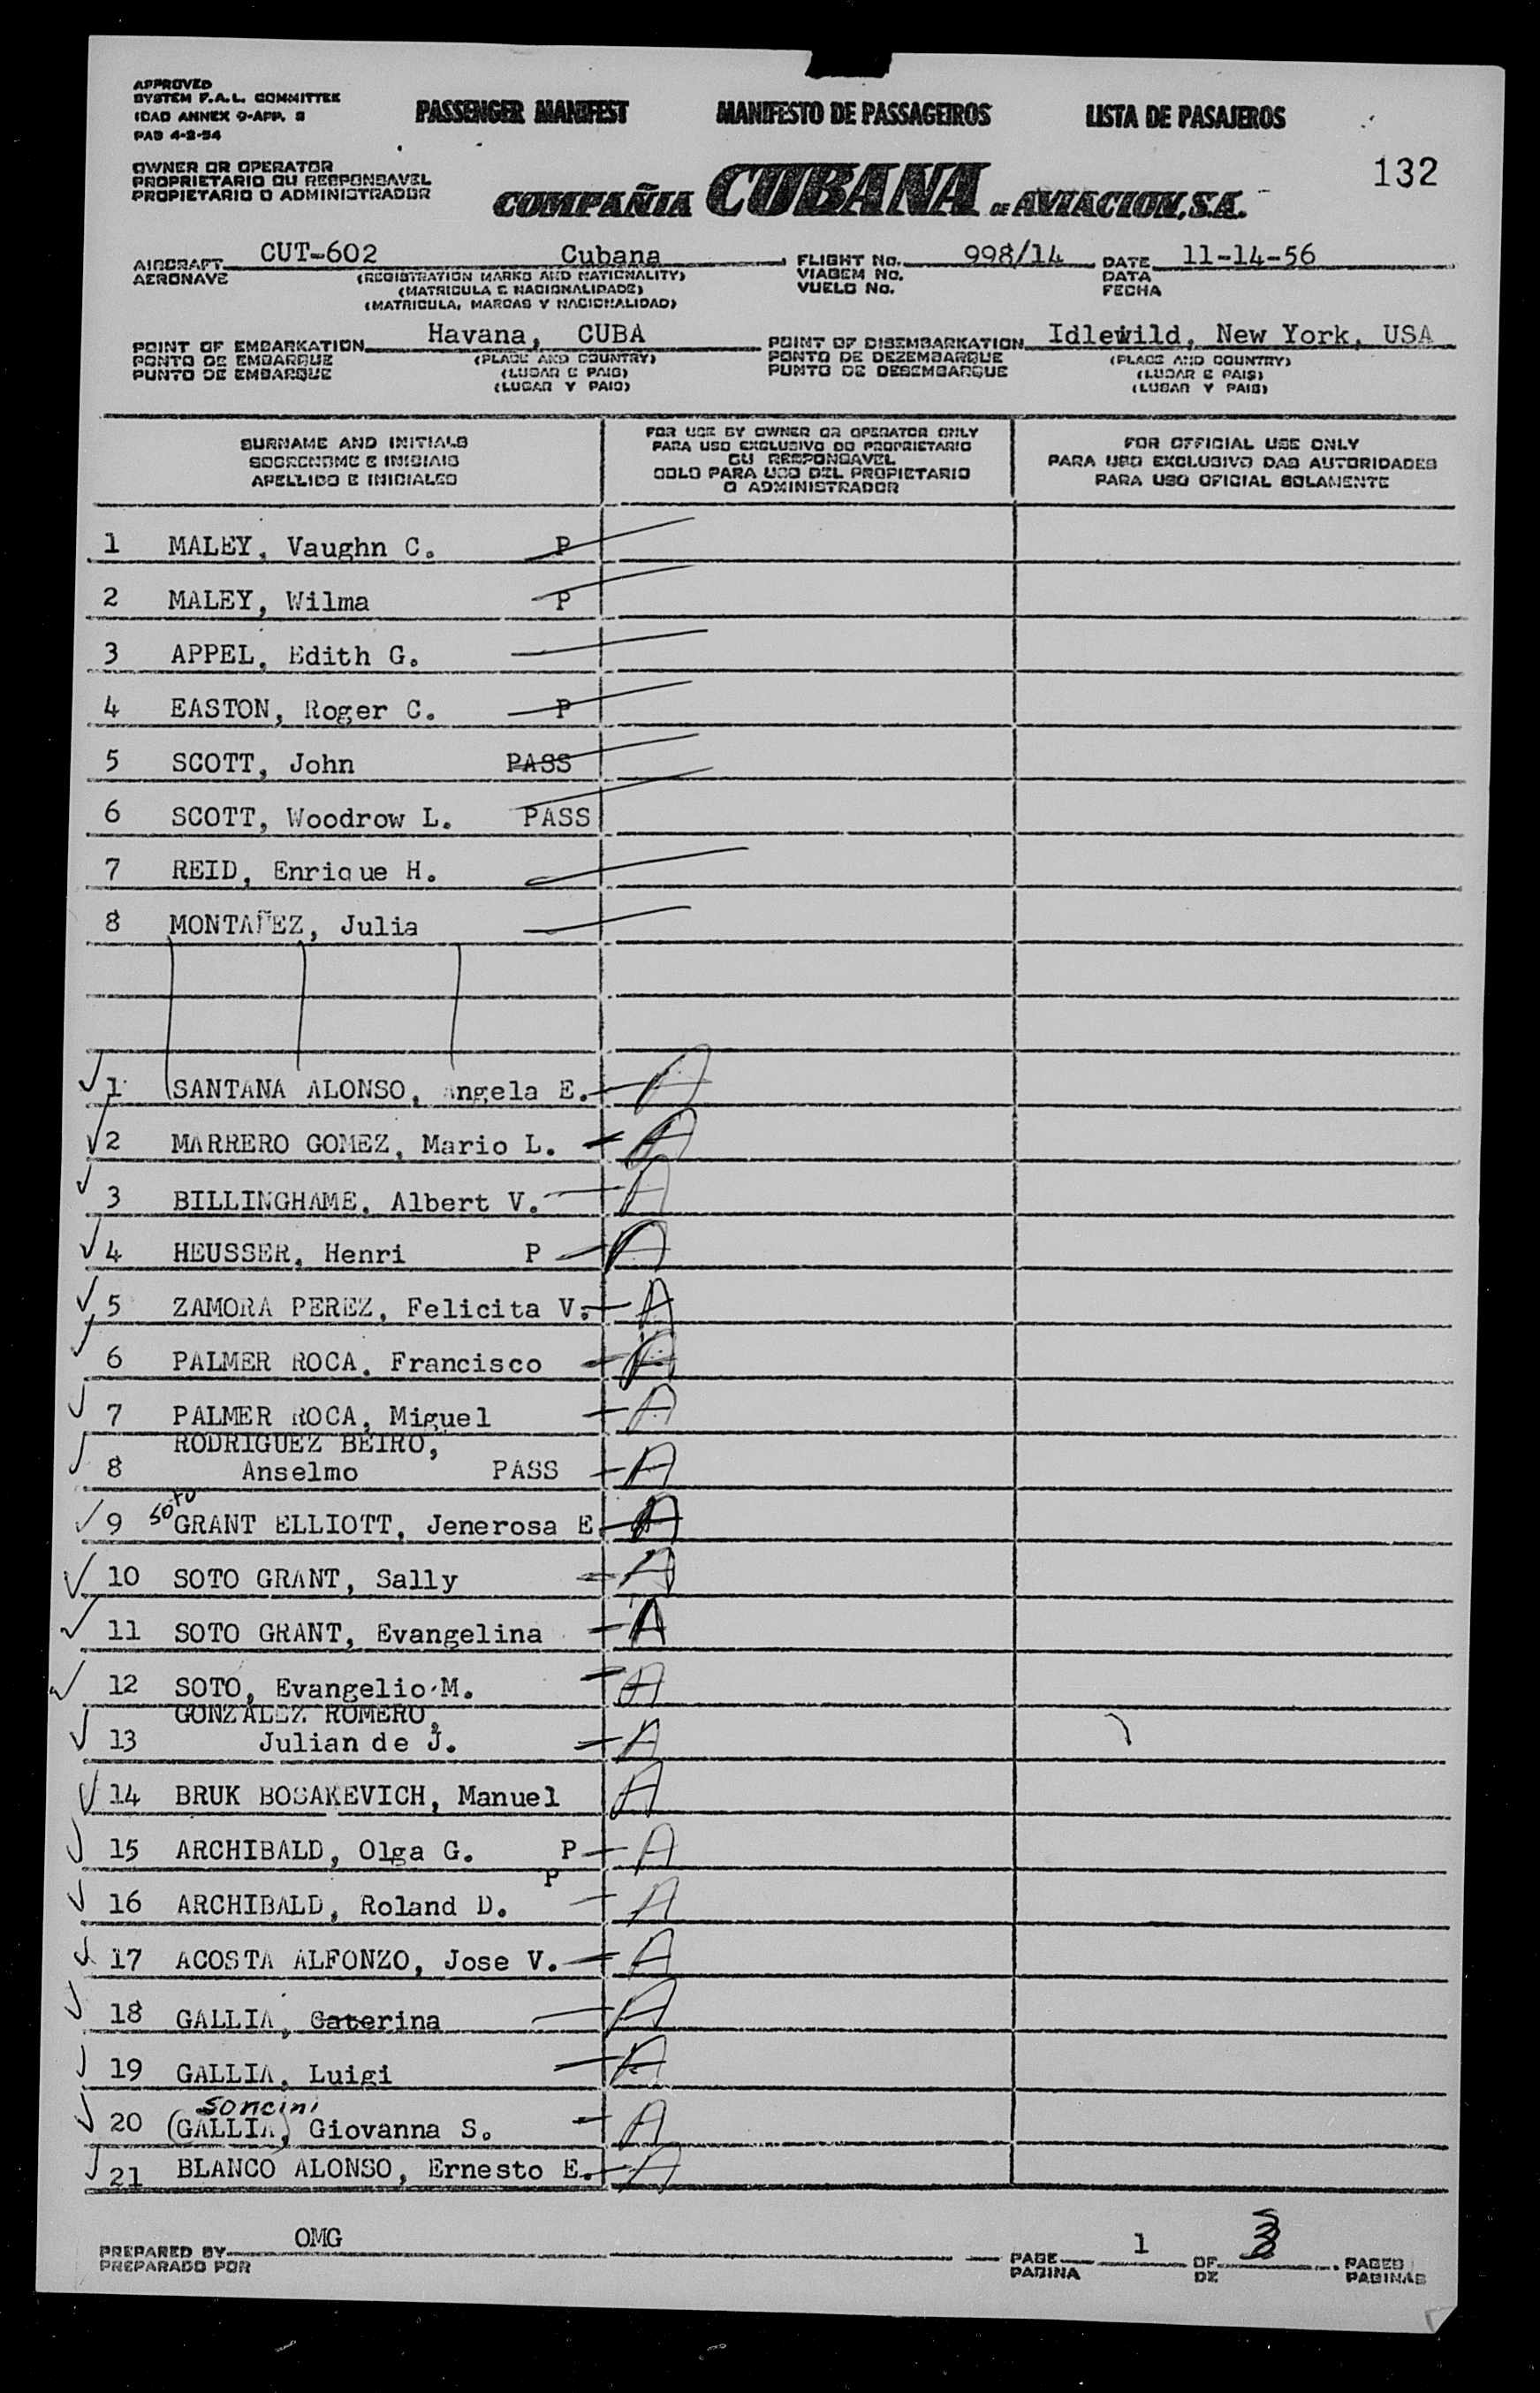 APPROVED
SYSTEM F.A.L. COMMITTEE
ICAO ANNEX 9-APP. 2
PAB 4-2-54
PASSENGER MANIFEST MANIFESTO DE PASSAGEIROS LISTA DE PASAJEROS
132
OWNER OR OPERATOR
PROPRIETARIO OU RESPONSAVEL
PROPIETARIO O ADMINISTRADOR
COMPAÑIA CUBANA DE AVIACION, S.A.
AIRCRAFT CUT-602 Cubana FLIGHT No. 998/14 DATE 11-14-56
AERONAVE (REGISTRATION MARKS AND NATIONALITY) VIAGEM No. DATA
(MATRICULA E NACIONALIDADE) VUELO No. FECHA
(MATRICULA, MARCAS Y NACIONALIDAD)
POINT OF EMBARKATION Havana, CUBA POINT OF DISEMBARKATION Idlewild, New York, USA
PONTO DE EMBARQUE (PLACE AND COUNTRY) PONTO DE DEZEMBARQUE (PLACE AND COUNTRY)
PUNTO DE EMBARQUE (LUGAR E PAIS) PUNTO DE DESEMBARQUE (LUGAR E PAIS)
(LUGAR Y PAIS) (LUGAR Y PAIS)
SURNAME AND INITIALS
SOBRENOME E INICIAIS
APELLIDO E INICIALES
FOR USE BY OWNER OR OPERATOR ONLY
PARA USO EXCLUSIVO DO PROPRIETARIO
OU RESPONSAVEL
SOLO PARA USO DEL PROPIETARIO
O ADMINISTRADOR
FOR OFFICIAL USE ONLY
PARA USO EXCLUSIVO DAS AUTORIDADES
PARA USO OFICIAL SOLAMENTE
1 MALEY, Vaughn C. P
2 MALEY, Wilma P
3 APPEL, Edith G.
4 EASTON, Roger C. P
5 SCOTT, John PASS
6 SCOTT, Woodrow L. PASS
7 REID, Enrique H.
8 MONTAÑEZ, Julia
1 SANTANA ALONSO, Angela E. A
2 MARRERO GOMEZ, Mario L. A
3 BILLINGHAME, Albert V. A
4 HEUSSER, Henri P A
5 ZAMORA PEREZ, Felicita V. A
6 PALMER ROCA, Francisco A
7 PALMER ROCA, Miguel A
RODRIGUEZ BEIRO,
8 Anselmo PASS A
9 Soto GRANT ELLIOTT, Jenerosa E A
10 SOTO GRANT, Sally A
11 SOTO GRANT, Evangelina A
12 SOTO, Evangelio M. A
GONZALEZ ROMERO,
13 Julian de J. A
14 BRUK BOSAKEVICH, Manuel A
15 ARCHIBALD, Olga G. P A
P
16 ARCHIBALD, Roland D. A
17 ACOSTA ALFONZO, Jose V. A
18 GALLIA, Caterina A
19 GALLIA, Luigi A
Soncini
20 (GALLIA), Giovanna S. A
21 BLANCO ALONSO, Ernesto E. A
PREPARED BY OMG PAGE 1 OF 3 PAGES
PREPARADO POR PAGINA DE PAGINAS